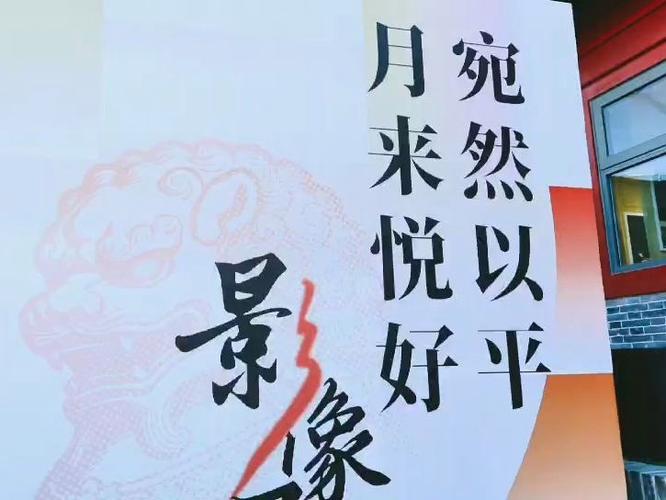 宛然以平
月来悦好
影像